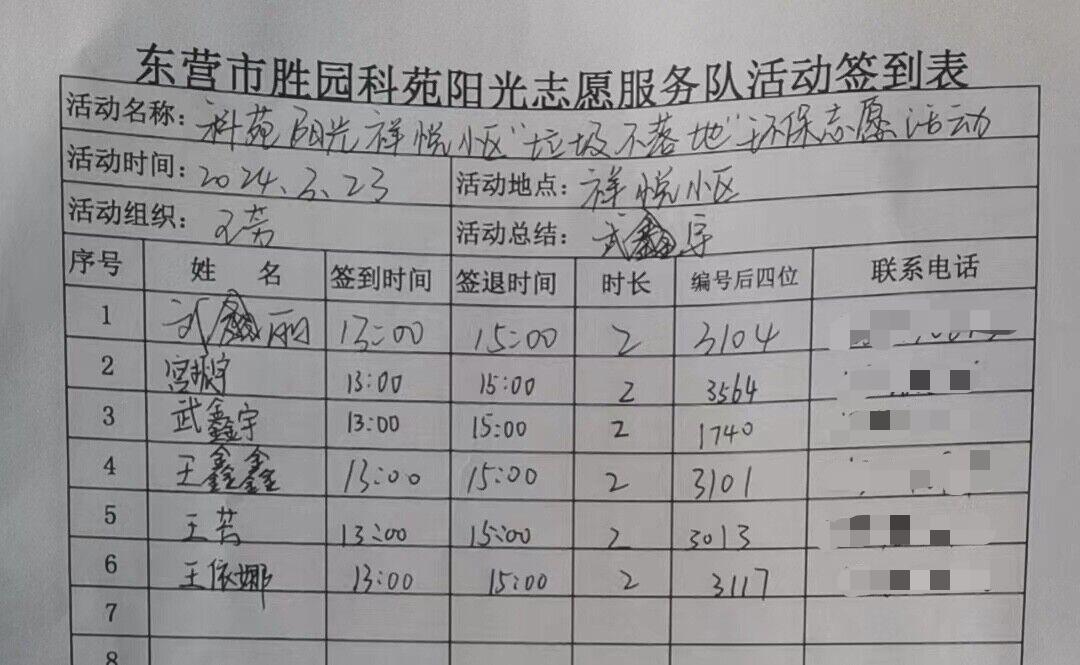 东营市胜园科苑阳光志愿服务队活动签到表
活动名称：科苑阳光祥悦小区“垃圾不落地”环保志愿活动
活动时间：2024.3.23 活动地点：祥悦小区
活动组织：王芳 活动总结：武鑫宇
序号 姓 名 签到时间 签退时间 时长 编号后四位 联系电话
1 武鑫丽 13:00 15:00 2 3104
2 宫振宇 13:00 15:00 2 3564
3 武鑫宇 13:00 15:00 2 1740
4 王鑫鑫 13:00 15:00 2 3101
5 王芳 13:00 15:00 2 3013
6 王依娜 13:00 15:00 2 3117
7
8